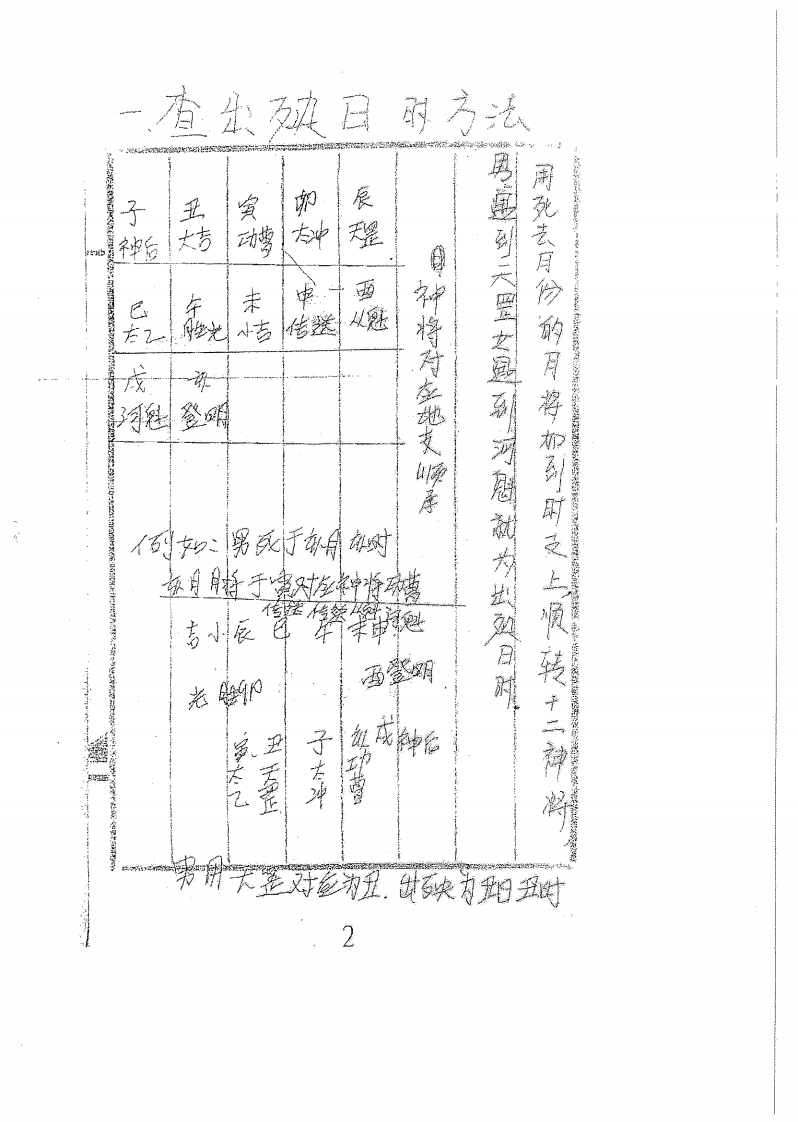 一、查出殃日时方法
用死去月份的月将加到时支上顺转十二神将
男遇到天罡女遇到河魁就为出殃日时
神将对应地支顺序
子 丑 寅 卯 辰
神后 大吉 功曹 太冲 天罡
巳 午 未 申 酉
太乙 胜光 小吉 传送 从魁
戌 亥
河魁 登明
例如：男死于亥月亥时
亥月月将于寅对应神将功曹
传送 传送 从魁 河魁
吉小 辰 巳 午 未 申
酉登明
光胜卯
寅 丑 子 亥 戌神后
太乙 天罡 太冲 功曹
男用天罡对应为丑.出殃为丑日丑时
2